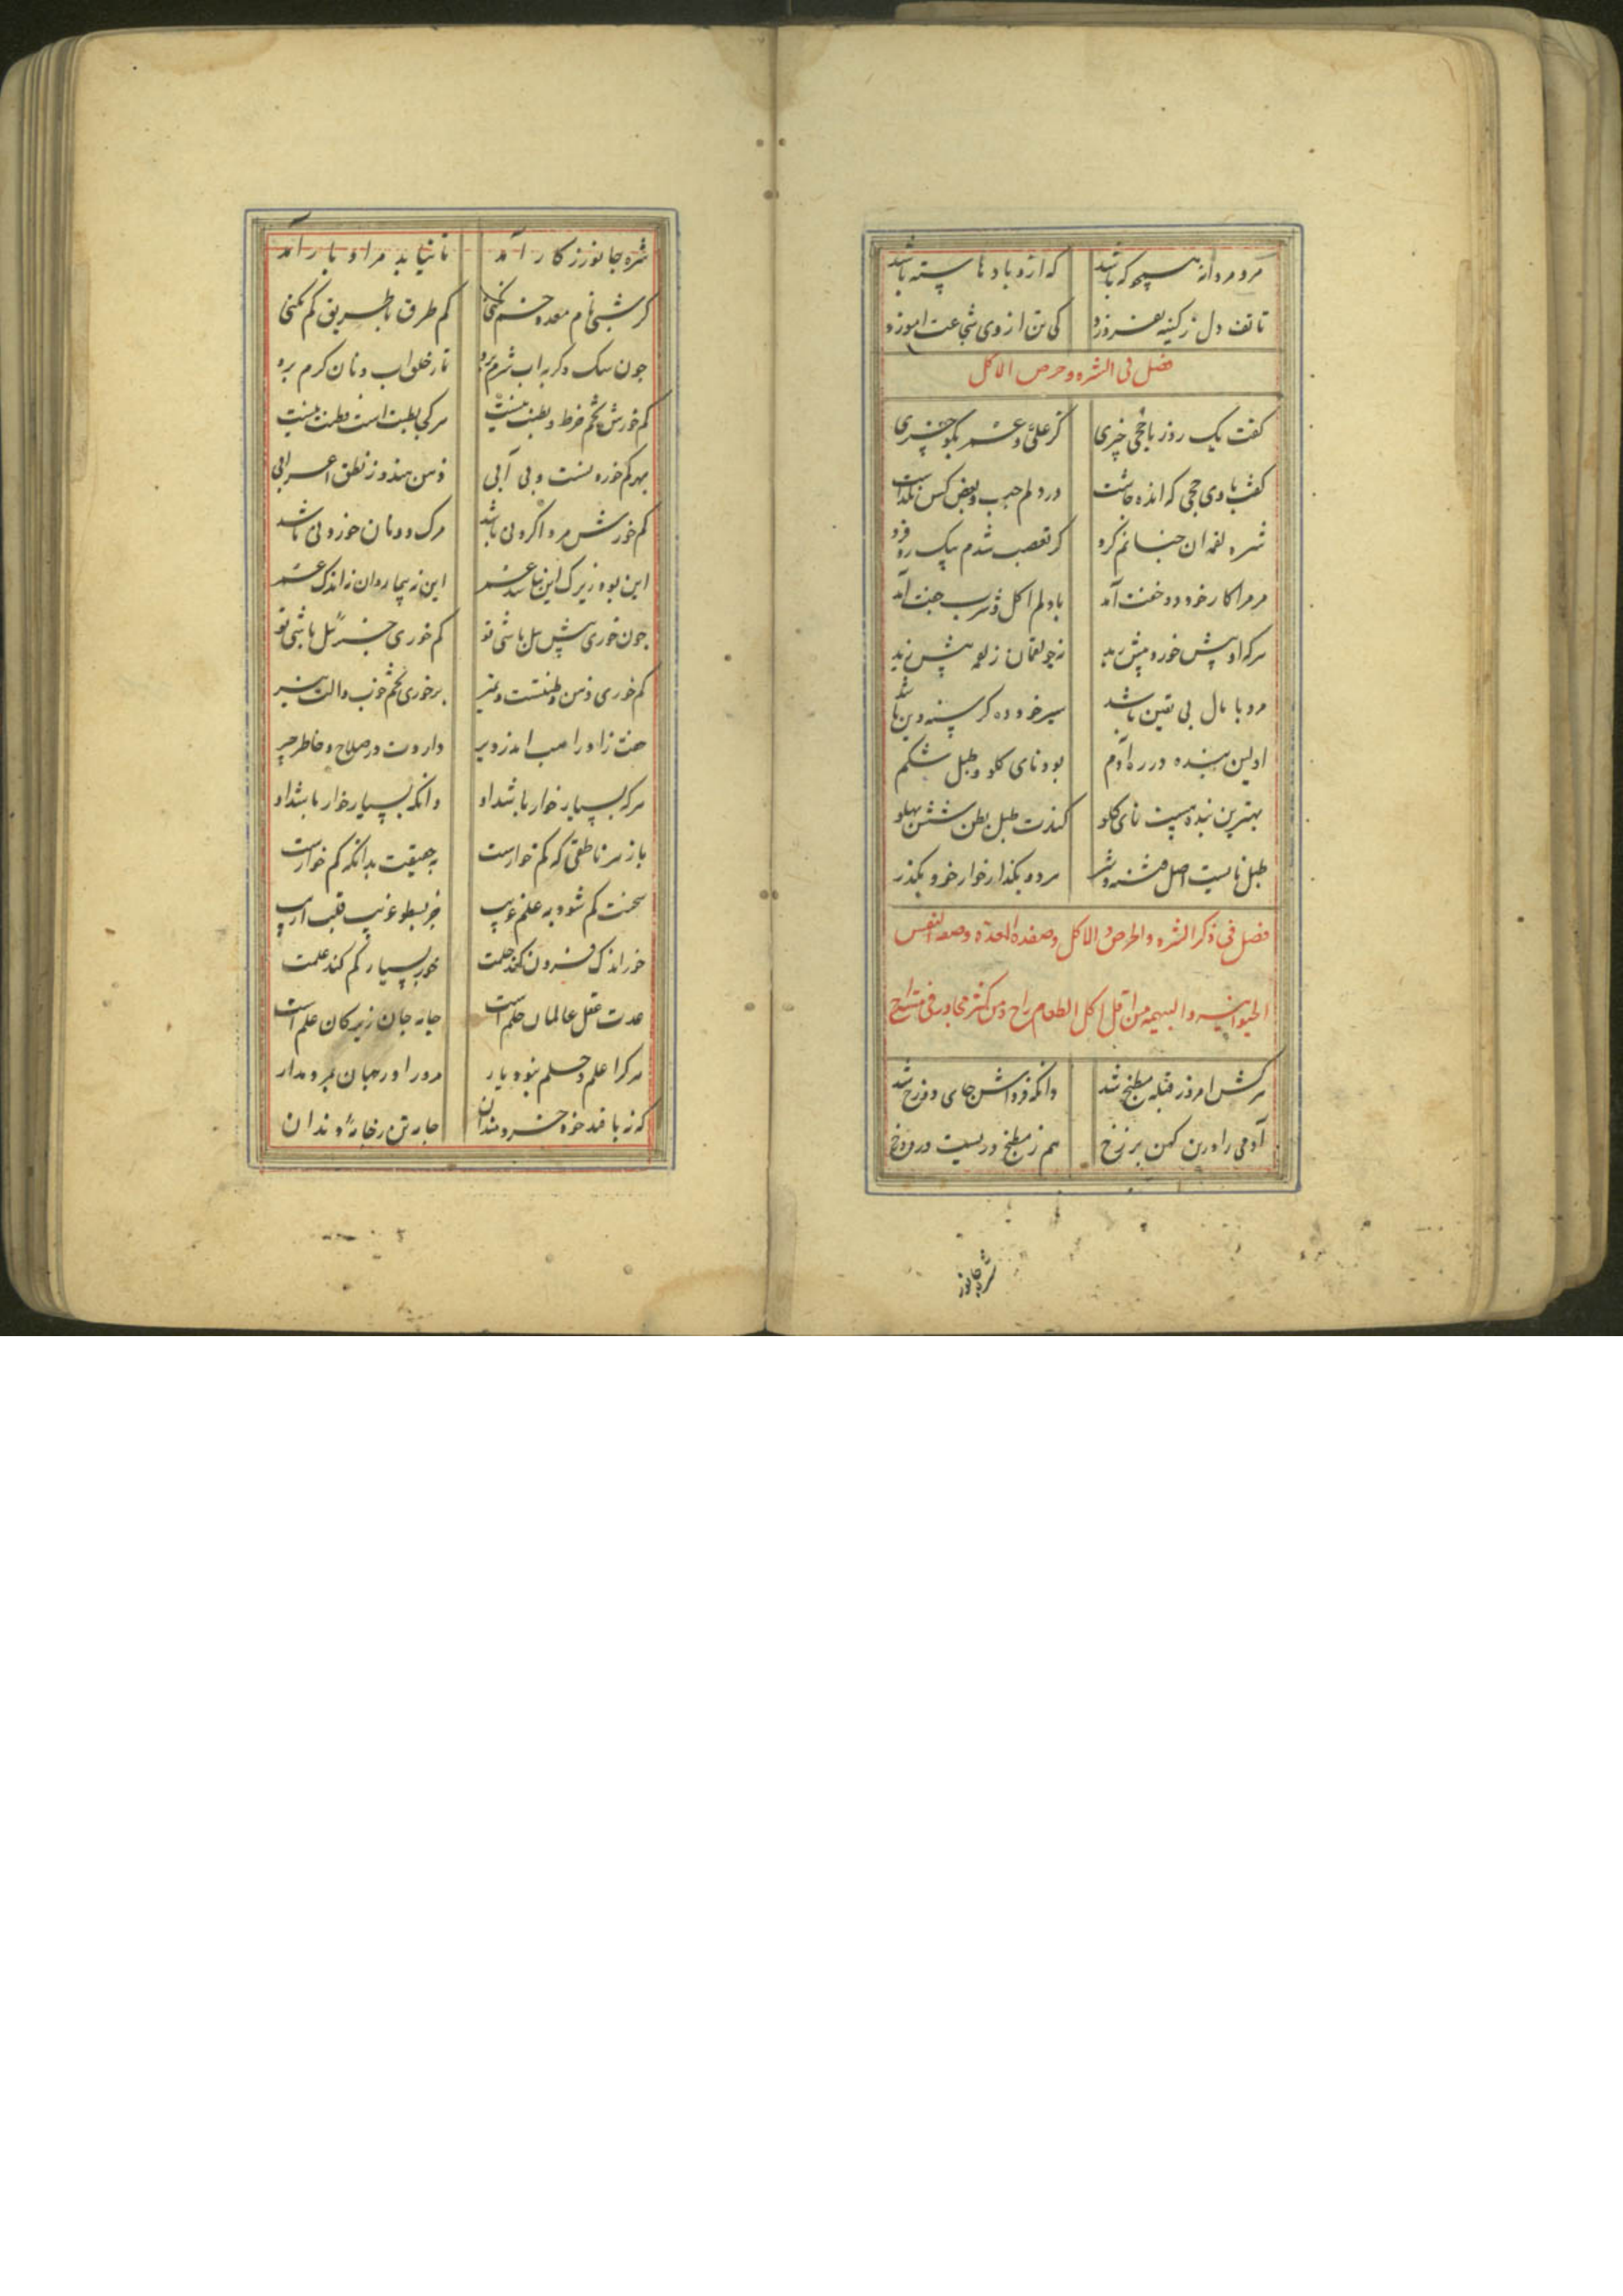 مرد مردانه همچو که باشد که ازو بادها بسته باشد
تا تف دل ز کینه نفروزد کی تن از وی شجاعت اموزد
فصل فی الشره و حرص الاکل
کفت یک روز باحجی خیری کز علی و عمر بکو چیزی
کفت باوی حجی که انده چاشت در دلم حب و بغض کس نکذاشت
شره لقمه ان چنانم کرد کز تعصب شدم بیک ره فرد
مر مرا کار خورد و خفت آمد با دلم اکل و شرب جفت آمد
هرکه او بیش خورد بیش رید نه چو لقمان ز لقمه بیش زید
مرد با مال بی یقین باشد سیر خورده کرسنه دین باشد
اولین بنده در ره آدم بود نای کلو و طبل شکم
بهترین بنده هست نای کلو کندت طبل بطن شش پهلو
طبل و نایست اصل فتنه و شر هر دو بکذار خوار خود بکذر
فصل فی ذکر الشره والحرص و الاکل وصفة المعدة وصفة النفس
الحیوانیه و البهیمه من اقل اکل الطعام راح ومن کثر
هرکش امروز قبله مطبخ شد دانکه فرداش جای دوزخ شد
آدمی را درین کهن برزخ هم ز مطبخ دریست در دوزخ
شره جانورز
شره جانورز کار آمد تا نیاید مر او با رآمد
کر شبی نام معده خم نکنی کم طرق باطریق کم نکنی
چون سک و کربه اب شرم برد تا ز خلق اب و نان کرم برد
کم خورش تخم فرط و بطنت نیست هرکجا بطنت است فطنت نیست
بهر کم خوردنست و بی آبی ذهن هندو ز نطق اعرابی
کم خورش مرد اکر دنی باشد مرک دونان خوردنی باشد
این بود زیرک این نباشد غمر این نه بیمار وان نه اندک عمر
چون خوری بیش پیل باشی تو کم خوری جبرئیل باشی تو
کم خوری ذهن و فطنتست و تمیز پر خوری تخم خواب و الت تیز
داروت در صلاح و خاطر چیر
هرکه بسیار خوار باشد او دانکه بسیار خوار باشد او
باز هر ناطقی که کم خوارست به حقیقت بدانکه کم خوارست
سخنت کم شود به علم غریب
خور اندک فزون کند حلمت خور بسیار کم کند علمت
عدت عقل عالمان حلم است خانه جان زیرکان علم است
هرکرا علم و حلم نبود یار مرو را در جهان بمرد مدار